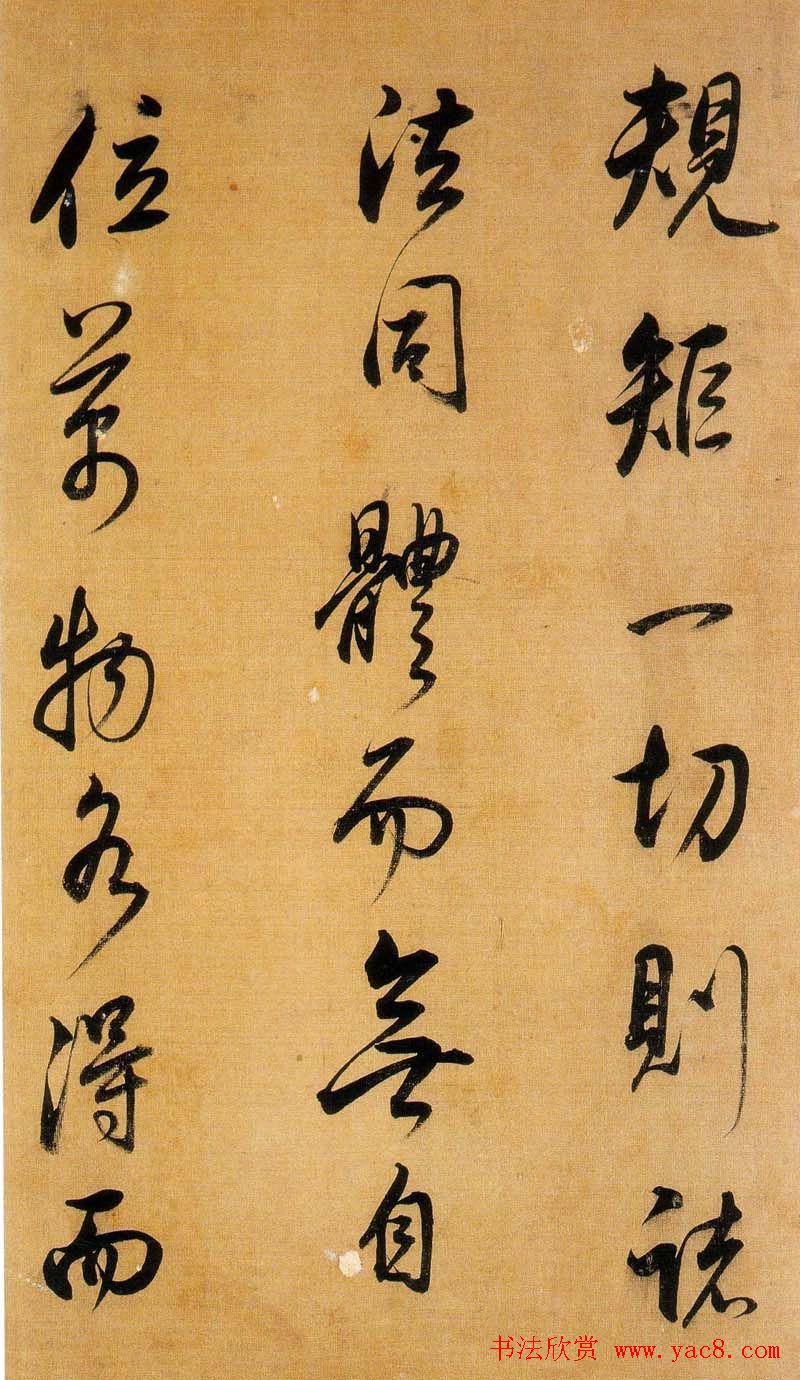 規矩一切則誌
法同體而無自
位萬物各得而
书法欣赏 www.yac8.com